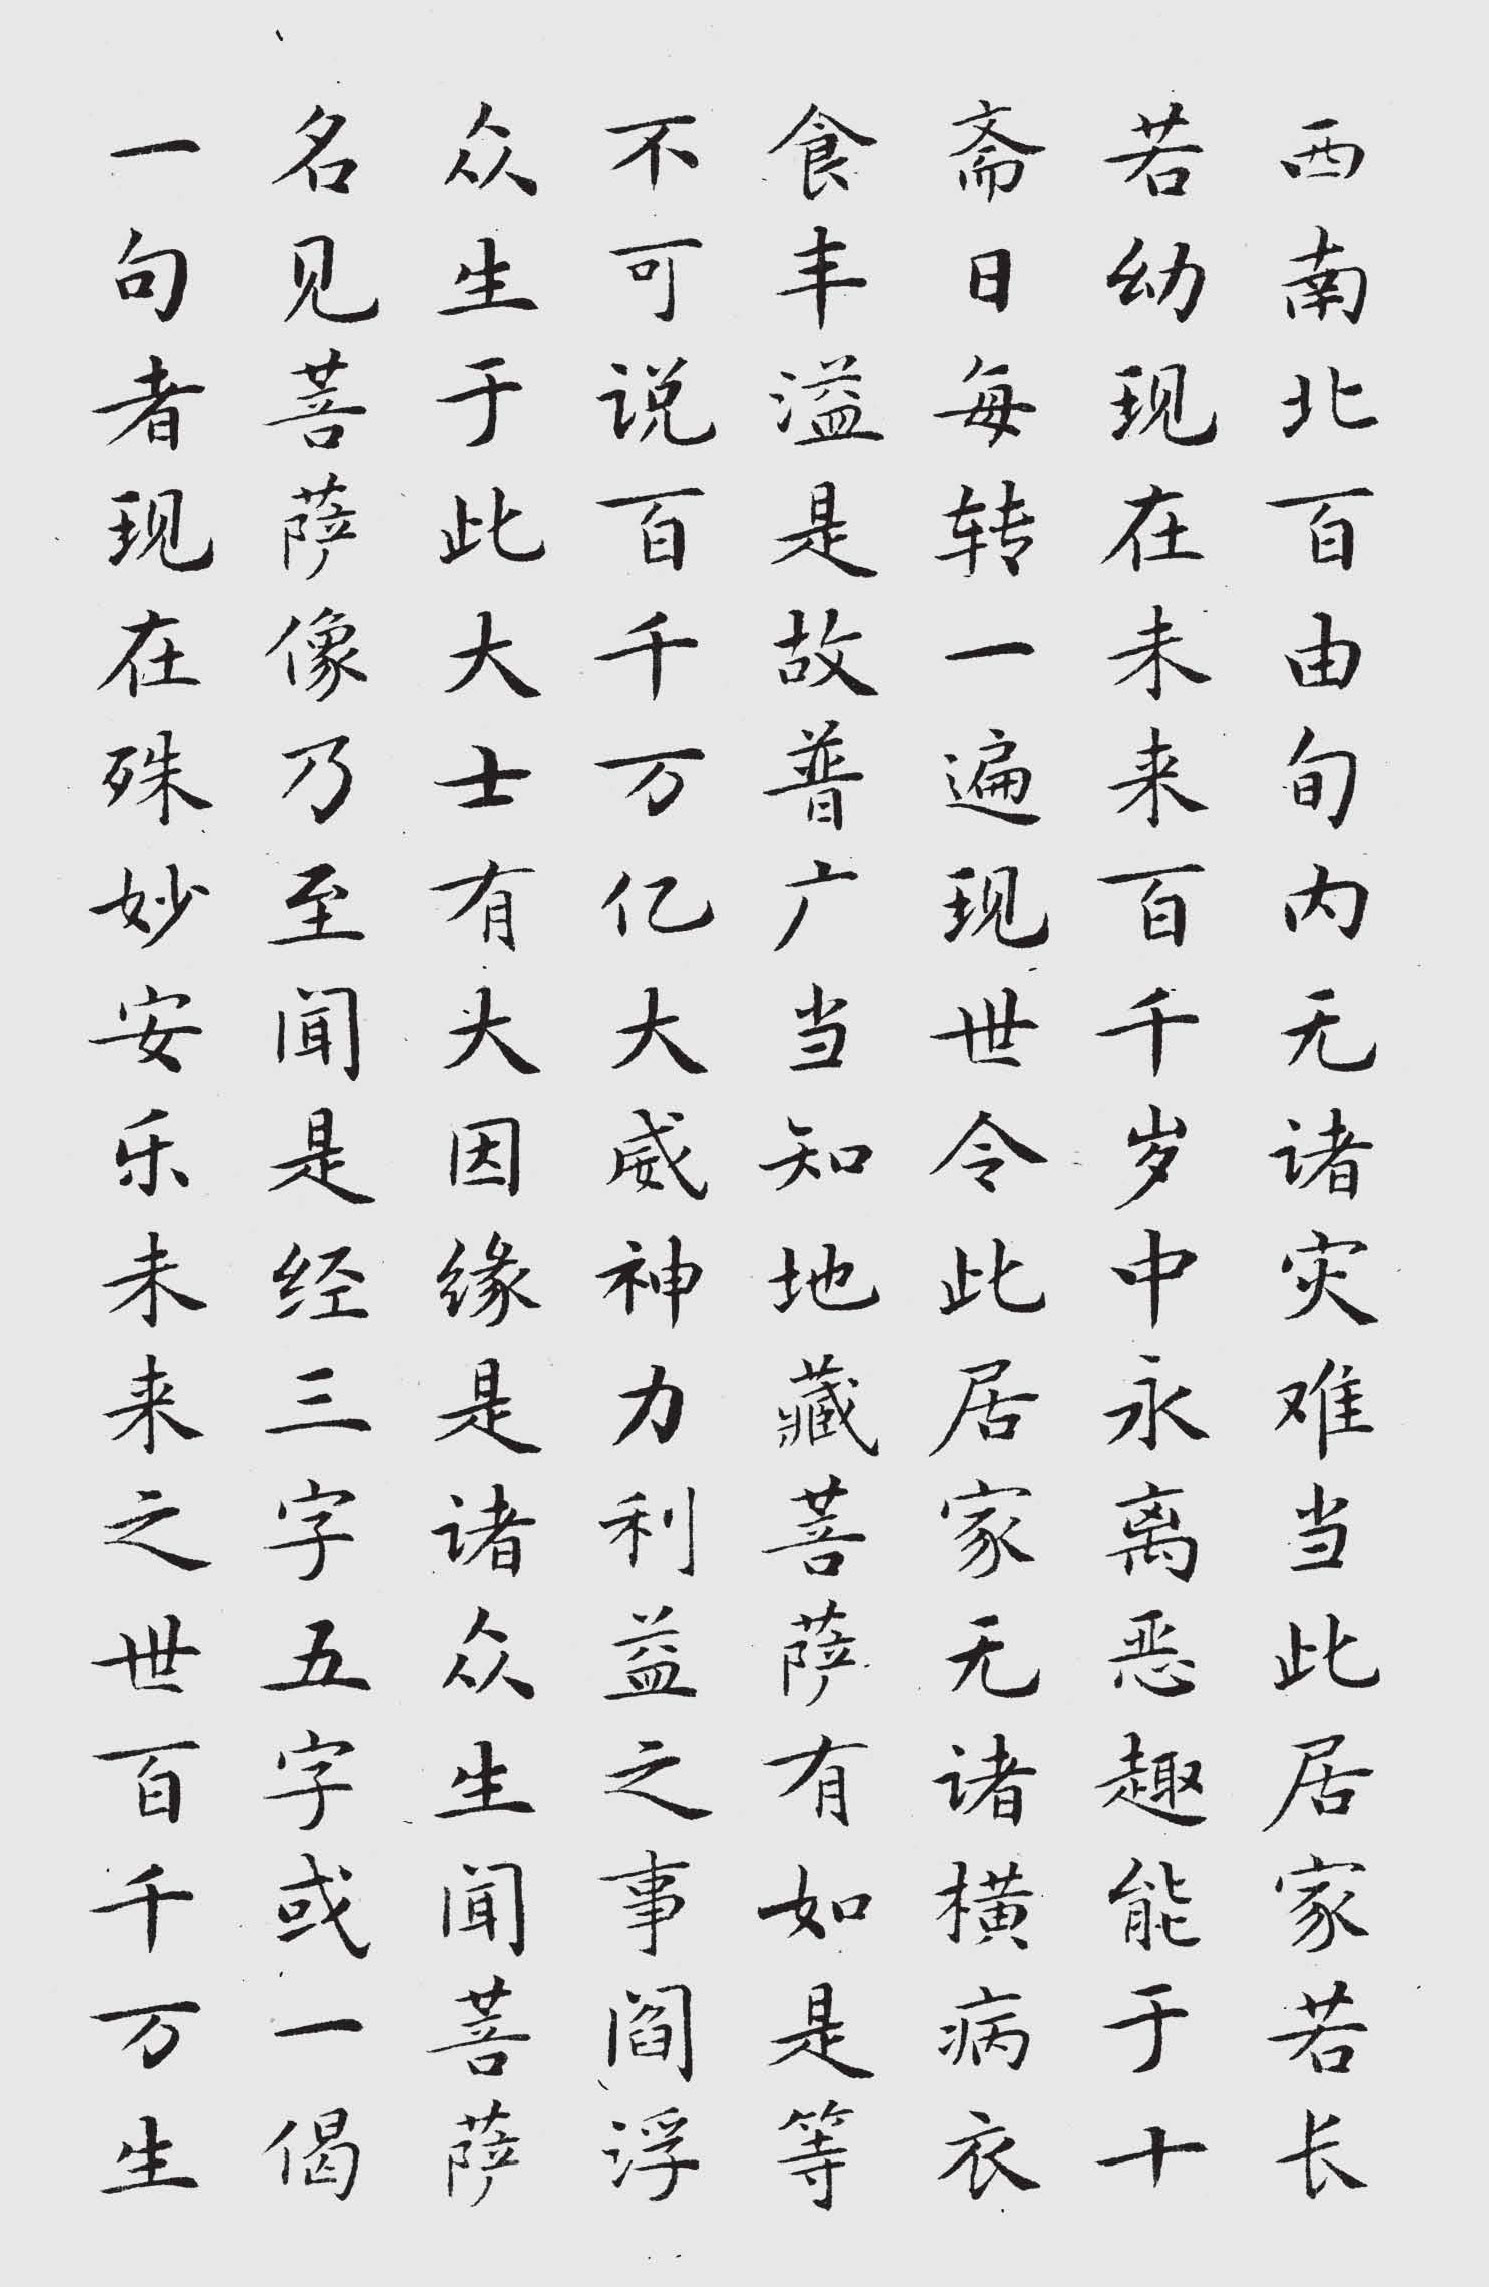 西南北百由旬内无诸灾难当此居家若长
若幼现在未来百千岁中永离恶趣能于十
斋日每转一遍现世令此居家无诸横病衣
食丰溢是故普广当知地藏菩萨有如是等
不可说百千万亿大威神力利益之事阎浮
众生于此大士有大因缘是诸众生闻菩萨
名见菩萨像乃至闻是经三字五字或一偈
一句者现在殊妙安乐未来之世百千万生